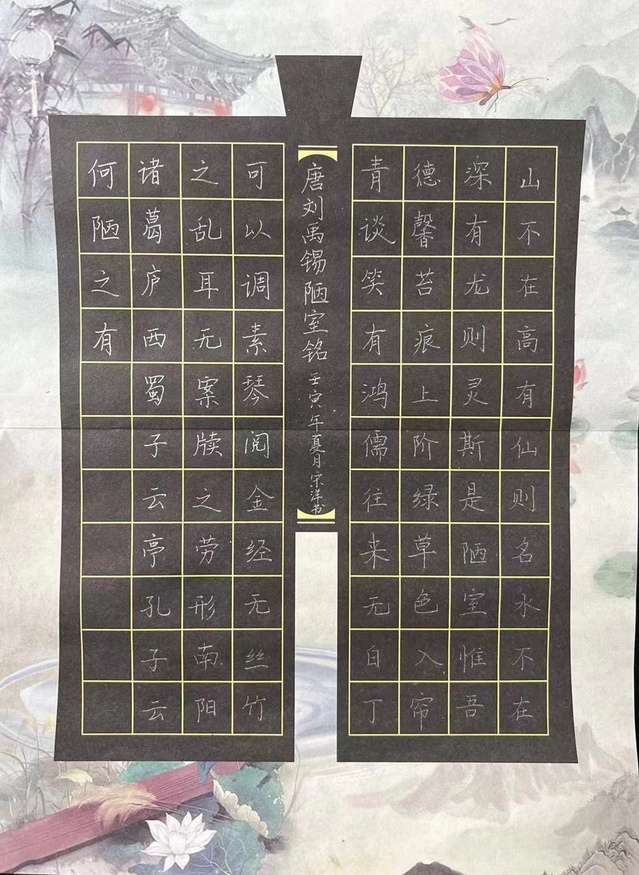 山不在高有仙则名水不在
深有龙则灵斯是陋室惟吾
德馨苔痕上阶绿草色入帘
青谈笑有鸿儒往来无白丁
唐刘禹锡陋室铭 壬寅年夏月宋洋书
可以调素琴阅金经无丝竹
之乱耳无案牍之劳形南阳
诸葛庐西蜀子云亭孔子云
何陋之有